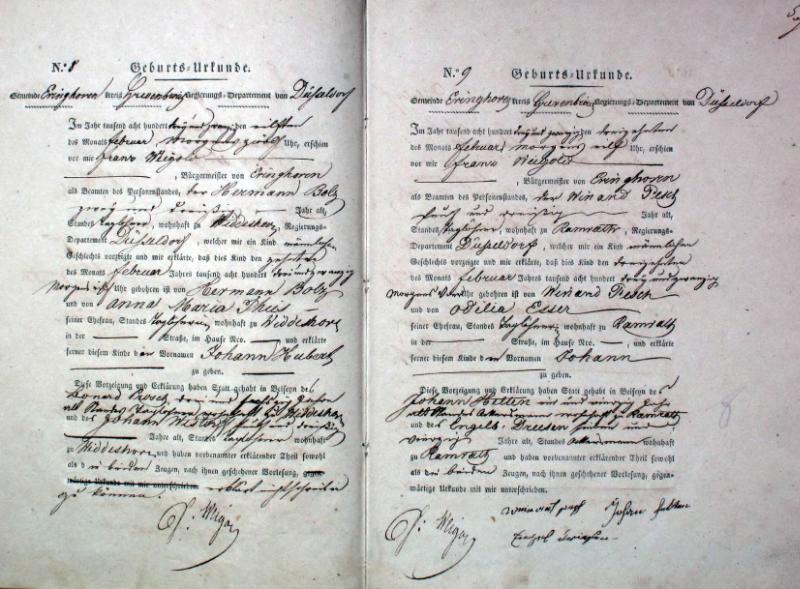 N.º 8 Geburts-Urkunde.
Gemeinde Evinghoven Kreis Grevenbroich Regierungs-Departement von Düsseldorf
Im Jahr tausend acht hundert drei und zwanzig den eilften
des Monats februar morgens Uhr, erschien
vor mir franz
, Bürgermeister von Evinghoven
als Beamten des Personenstandes, der Hermann Bolz
dreißig Jahr alt,
Standes Taglöhner, wohnhaft zu Widdeshoven, Regierungs-
Departement Düsseldorf, welcher mir ein Kind männlichen
Geschlechts vorzeigte und mir erklärte, daß dies Kind den zehnten
des Monats februar Jahres tausend acht hundert drei und zwanzig
Morgens Uhr gebohren ist von Hermann Bolz
und von Anna Maria
seiner Ehefrau, Standes Taglöhnerin wohnhaft zu Widdeshoven
in der Straße, im Hause Nro. , und erklärte
ferner diesem Kinde den Vornamen Johann Hubert
zu geben.
Diese Vorzeigung und Erklärung haben Statt gehabt in Beiseyn des
drei und Jahre
alt Standes Taglöhner wohnhaft zu Widdeshoven
und des Johann und dreißig
Jahre alt, Standes Taglöhner wohnhaft
zu Widdeshoven und haben vorbenannter erklärender Theil sowohl
als die beiden Zeugen, nach ihnen geschehener Vorlesung, gegen-
wärtige Urkunde mit mir unterschrieben. erklärt nicht schreiben
zu können.
N.º 9 Geburts-Urkunde.
Gemeinde Evinghoven Kreis Grevenbroich Regierungs-Departement von Düsseldorf
Im Jahr tausend acht hundert drei und zwanzig den dreizehnten
des Monats februar morgens eilf Uhr, erschien
vor mir franz
, Bürgermeister von Evinghoven
als Beamten des Personenstandes, der Winand Pesch
fünf und dreißig Jahr alt,
Standes Taglöhner, wohnhaft zu Ramrath, Regierungs-
Departement Düsseldorf, welcher mir ein Kind männlichen
Geschlechts vorzeigte und mir erklärte, daß dies Kind den dreizehnten
des Monats februar Jahres tausend acht hundert drey und zwanzig
Morgens Uhr gebohren ist von Winand Pesch
und von Odilia Esser
seiner Ehefrau, Standes Taglöhnerin wohnhaft zu Ramrath
in der Straße, im Hause Nro. , und erklärte
ferner diesem Kinde den Vornamen Johann
zu geben.
Diese Vorzeigung und Erklärung haben Statt gehabt in Beiseyn des
Johann und vierzig Jahre
alt Standes Ackersmann wohnhaft zu Ramrath
und des Engels Driesen sieben und
vierzig Jahre alt, Standes Ackersmann wohnhaft
zu Ramrath und haben vorbenannter erklärender Theil sowohl
als die beiden Zeugen, nach ihnen geschehener Vorlesung, gegen-
wärtige Urkunde mit mir unterschrieben.